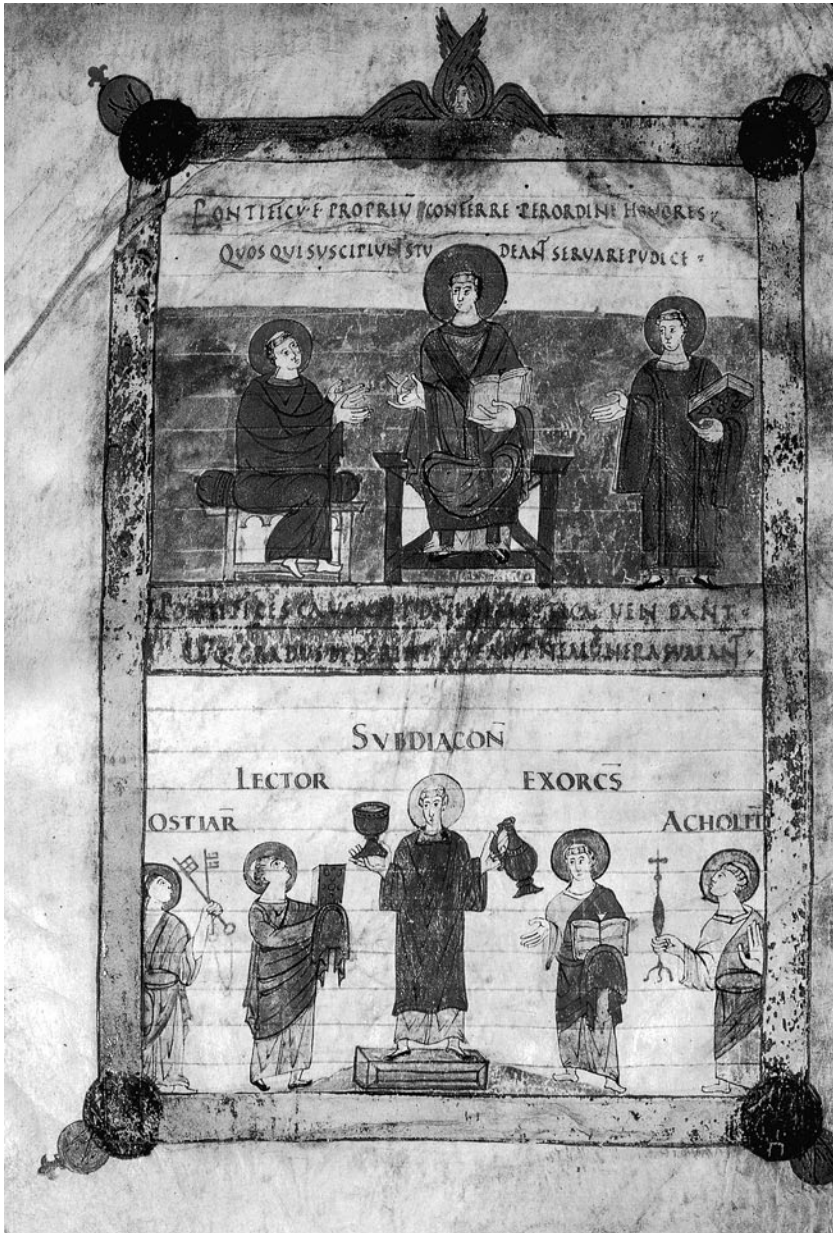 PONTIFICŪ·E·PROPRIŪ CONFERRE PERORDINE HONORES·
QUOS QUI SUSCIPIUN̄ STU DEAN̄ SERVARE PUDICE·
PONTIFICES CAVEANT DNI VENDANT·
GRADUS NE MUNERA SUMAN̄·
SVBDIACON̄
LECTOR EXORCS̄
OSTIAR̄ ACHOLIT̄